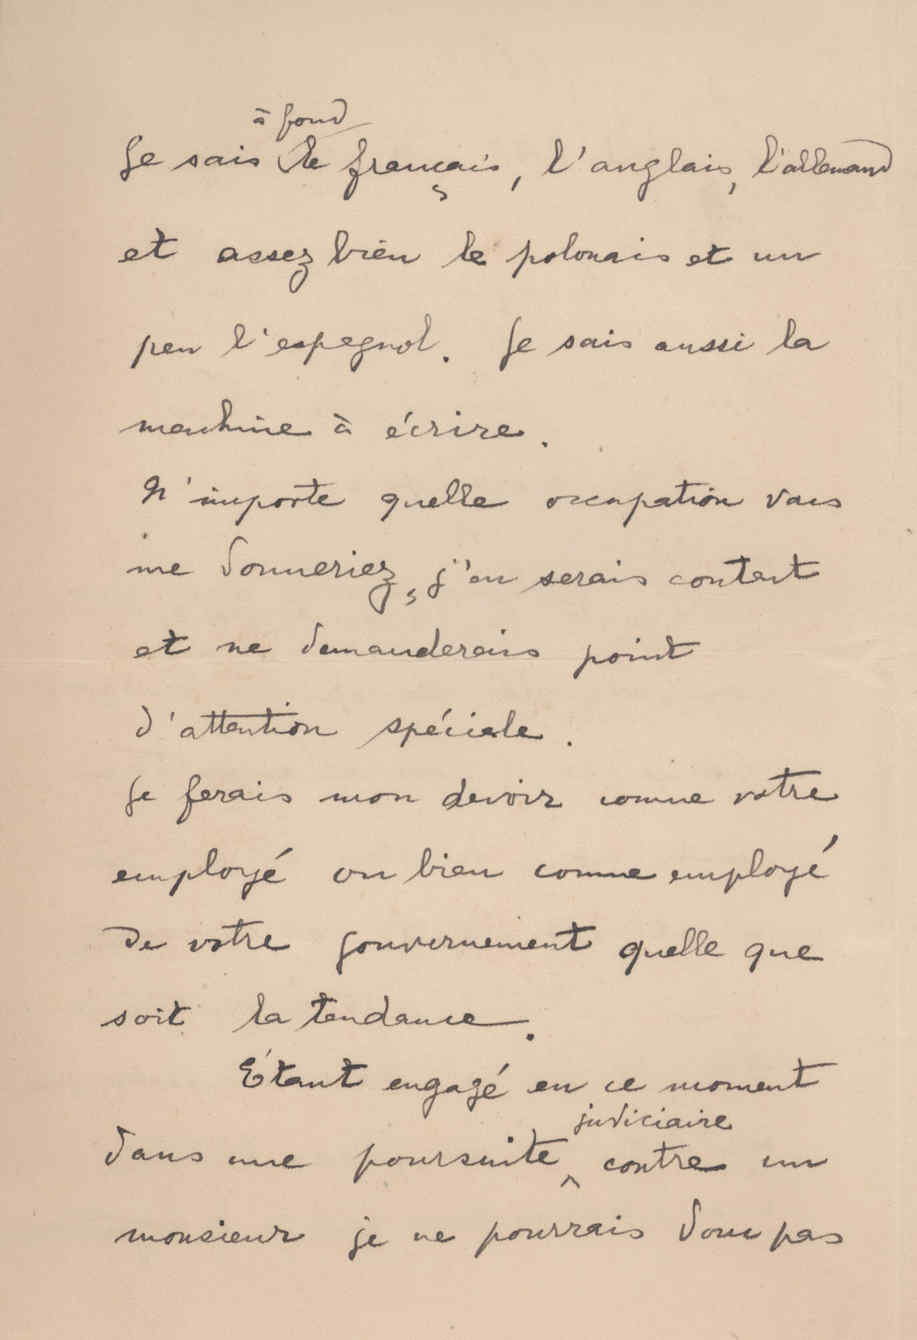 Je sais à fond le français, l'anglais, l'allemand
et assez bien le polonais et un
peu l'espagnol. Je sais aussi la
machine à écrire.
N'importe quelle occupation vous
me donneriez, j'en serais content
et ne demanderais point
d'attention spéciale.
Je ferais mon devoir comme votre
employé ou bien comme employé
de votre gouvernement quelle que
soit la tendance.
Étant engagé en ce moment
dans une poursuite judiciaire contre un
monsieur je ne pourrais donc pas